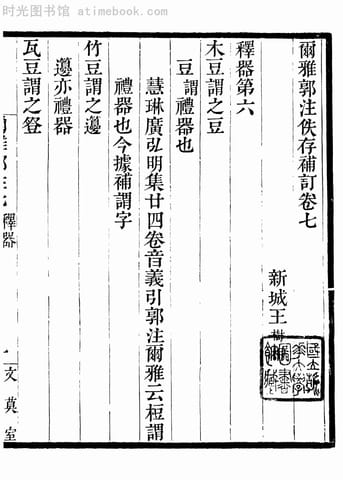 时光图书馆 atimebook.com
爾雅郭注佚存補訂卷七
新城王樹
釋器第六
木豆謂之豆
豆謂禮器也
慧琳廣弘明集廿四卷音義引郭注爾雅云桓謂
禮器也今據補謂字
竹豆謂之籩
籩亦禮器
瓦豆謂之登
釋器
文莫室